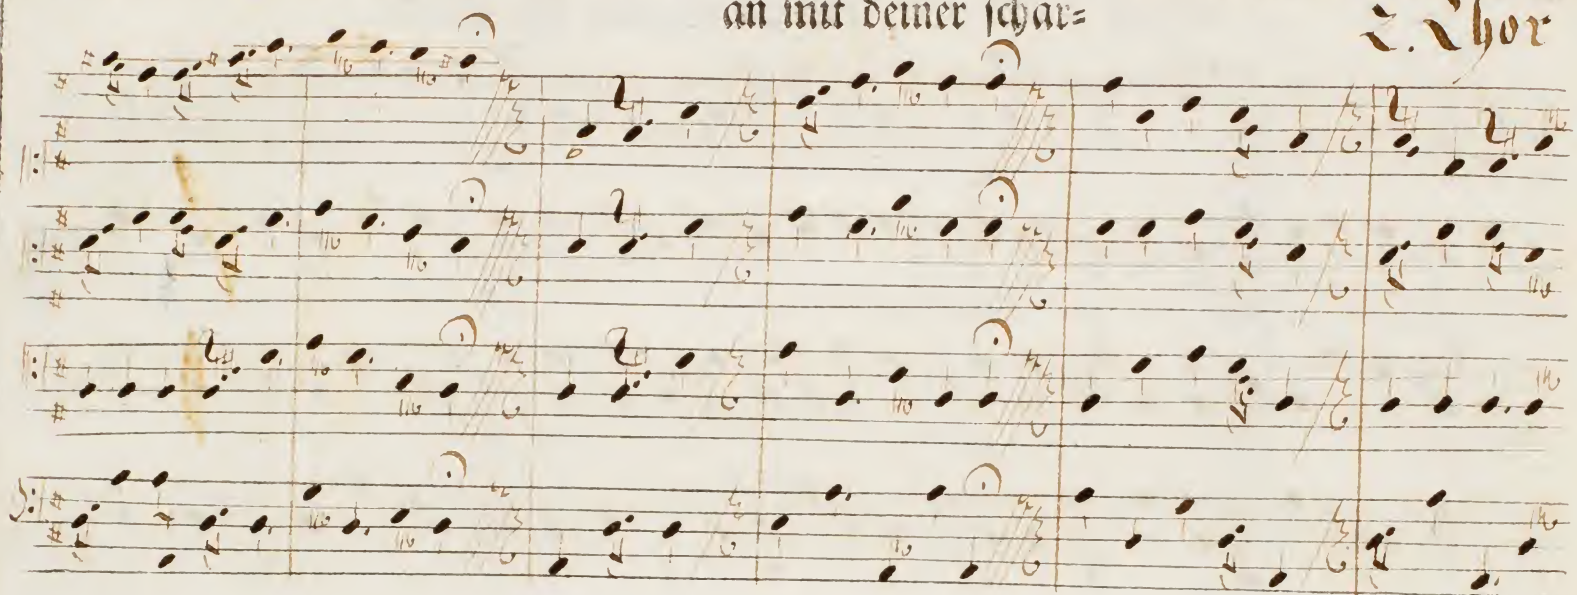 an mit deiner schar=
2. Chor